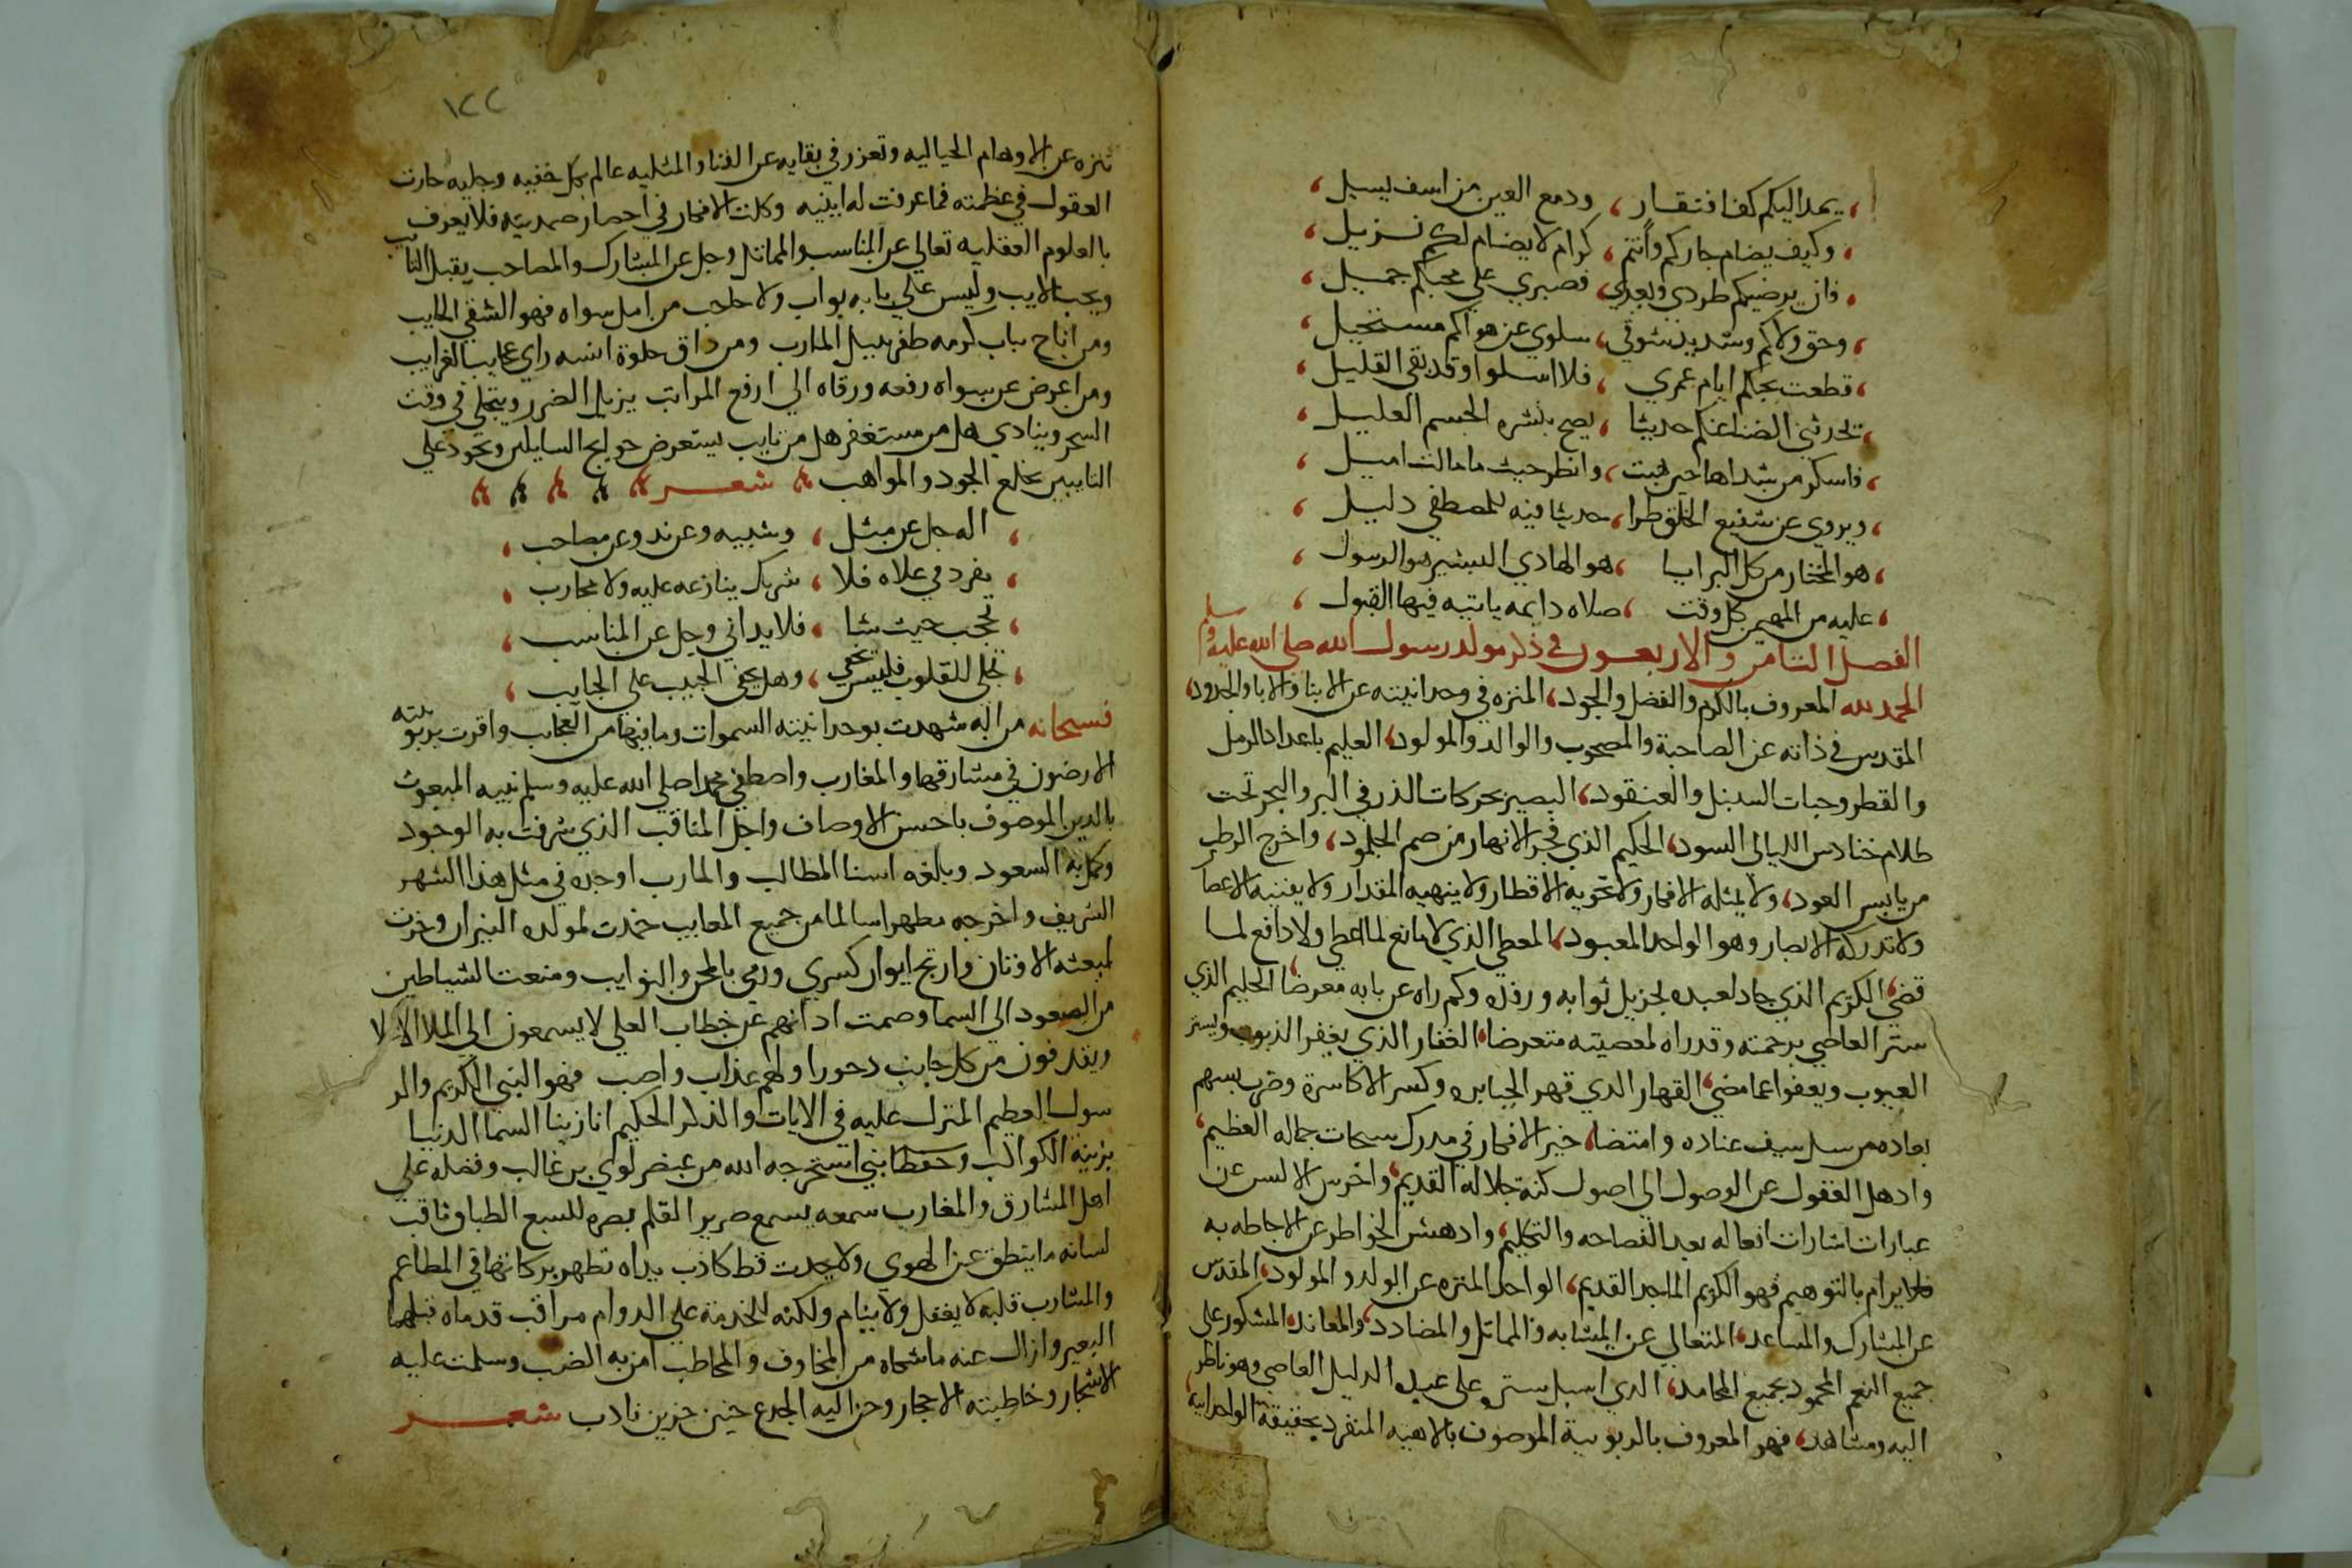 يمد اليكم كف افتقار ، ودمع العين من اسف يسيل ،
وكيف يضام جاركم وأنتم ، كرام لا يضام لكم نزيل ،
فان يرضيكم طردي وبعدي ، فصبري علي محبتكم جميل ،
وحق ولاكم وشديد شوقي ، سلوي عن هواكم مستحيل ،
قطعت بحبكم ايام عمري ، فلا اسلوا وقد بقى القليل ،
تحدثني الصبا عنكم حديثا ، يصح بنشره الجسم العليل ،
فاسكر من شداها حين هبت ، وانظر حيث ما مالت اميل ،
ويروي عن شفيع الخلق طرا ، حديثا فيه للمصطفي دليل ،
هو المختار من كل البرايا ، هو الهادي البشير هو الرسول ،
عليه من المهيمن كل وقت ، صلاه دايمه ياتيه فيها القبول ،
الفصل الثامن والاربعون في ذكر مولد رسول الله صلى الله عليه وسلم
الحمد لله المعروف بالكرم والفضل والجود ، المنزه في وحدانيته عن الابنا والابا والجدود ،
المقدس في ذاته عن الصاحبة والمصحوب والوالد والمولود ، العليم باعداد الرمل
والقطر وحبات السنبل والعنقود ، البصير بحركات الذر في البر والبحر تحت
ظلام حنادس الليالى السود ، الحكيم الذي فجر الانهار من صم الجلمود ، واخرج الرطب
من يابس العود ، ولا يمثله الافكار ولا تحويه الاقطار ولا ينهيه المقدار ولا يفنيه الاعصا
ولا تدركه الابصار وهو الواحد المعبود ، المعطي الذي لا مانع لما اعطي ولا دافع لما
قضي ، الكريم الذي جاد لعبده لجزيل ثوابه ورفده وكم راه عن بابه معرضا ، الحليم الذي
ستر العاصي برحمته وقد راه لمعصيته متعرضا ، الغفار الذي يغفر الذنوب ويستر
العيوب ويعفوا عما مضي ، القهار الدي قهر الجبابره وكسر الاكاسرة وضرب بسهم
بعاده من سل سيف عناده وامتضا ، حير الافكار في مدرك سبحات جماله العظيم ،
وادهل العقول عن الوصول الي اصول كنه جلاله القديم ، واخرس الالسن عن
عبارات اشارات افعاله بعد الفصاحه والتكليم ، وادهش الخواطر عن الاحاطه به
فلا يرام بالتوهيم فهو الكريم الماجد القديم ، الواحد المنزه عن الولد والمولود ، المقدس
عن المشارك والمساعد ، المتعالي عن المشابه والمماثل والمضادد ، والمعاند ، المشكور على
جميع النعم المحمود بجميع المحامد ، الذي اسبل ستره على عبده الدليل العاصي وهو ناظر
اليه ومشاهد ، فهو المعروف بالربوبية الموصوف بالالاهيه المنفرد بحقيقة الواحدانيه ،
١٢٢
تنزه عن الاوهام الخياليه وتعزز في بقايه عن الفنا والمثليه عالم بكل خفيه وجليه حارت
العقول في عظمته فما عرفت له اينيه وكلت الافكار في احصار صمديته فلا يعرف
بالعلوم العقليه تعالي عن المناسب والمماثل وجل عن المشارك والمصاحب يقبل التايب
ويحب الايب وليس علي بابه بواب ولا حاجب من امل سواه فهو الشقي الخايب
ومن اناخ بباب كرمه ظفر بنيل المارب ومن داق حلاوة انسه راي عجايب الغرايب
ومن اعرض عن سواه رفعه ورقاه الي ارفع المراتب يزيل الضرر ويتجلي في وقت
السحر وينادي هل من مستغفر هل من تايب يستعرض حوايج السايلين ويجود علي
التايبين بخلع الجود والمواهب شعر
اله جل عن مثل ، وشبيه وعن ند وعن مصاحب ،
تفرد في علاه فلا ، شريك ينازعه عليه ولا محارب ،
تحجب حيث شا ، فلا يداني وجل عن المناسب ،
تجلى للقلوب فليس يخفي ، وهل يخفى الحبيب على الحبايب ،
فسبحانه من اله شهدت بوحدانيته السموات وما فيها من العجايب واقرت بربوبيته
الارضون في مشارقها والمغارب واصطفي محمدا صلي الله عليه وسلم نبيه المبعوث
بالدين الموصوف باحسن الاوصاف واجل المناقب الذي شرفت به الوجود
وكمل به السعود وبلغه اسنا المطالب والمارب اوجده في مثل هذا الشهر
الشريف واخرجه مطهرا سالما من جميع المعايب خمدت لمولده النيران وخرت
لمبعثه الاوثان وارتج ايوان كسري ورمي بالمحن والنوايب ومنعت الشياطين
من الصعود الي السما وصمت ادانهم عن خطاب العلي لا يسمعون الي الملا الاعلا
ويقدفون من كل جانب دحورا ولهم عذاب واصب فهو النبي الكريم والر
سول العظيم المنزل عليه في الايات والذكر الحكيم انا زينا السما الدنيا
بزينة الكواكب وحفظا نبي استخرجه الله من عنصر لوي بن غالب وفضله علي
اهل المشارق والمغارب سمعه يسمع صرير القلم بصره للسبع الطباق ثاقب
لسانه ما ينطق عن الهوي ولا يحدث قط كاذب يداه تظهر بركاتها في المطاعم
والمشارب قلبه لا يغفل ولا ينام ولكنه للخدمة علي الدوام مراقب قدماه قبلهما
البعير وازال عنه ما شكاه من المخاوف والمخاطب امن به الضب وسلمت عليه
الاشجار وخاطبته الاحجار وحن اليه الجدع حنين حزين نادب شعر